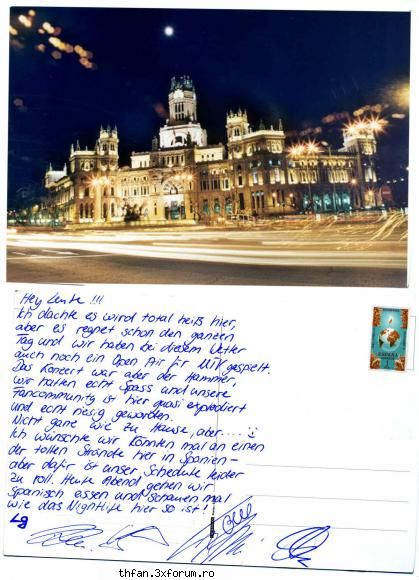 Hey Leute !!!
Ich dachte es wird total heiß hier,
aber es regnet schon den ganzen
Tag und wir haben bei diesem Wetter
auch noch ein Open Air für MTV gespielt.
Das Konzert war aber der Hammer,
wir hatten echt Spass und unsere
Fancommunity ist hier quasi explodiert
und echt riesig geworden.
Nicht ganz wie zu Hause, aber....
Ich wünschte wir könnten mal an einen
der tollen Strände hier in Spanien –
aber dafür ist unser Schedule leider
zu voll. Heute Abend gehen wir
Spanisch essen und schauen mal
wie das Nightlife hier so ist!
ESPAÑA
thfan.3xforum.ro